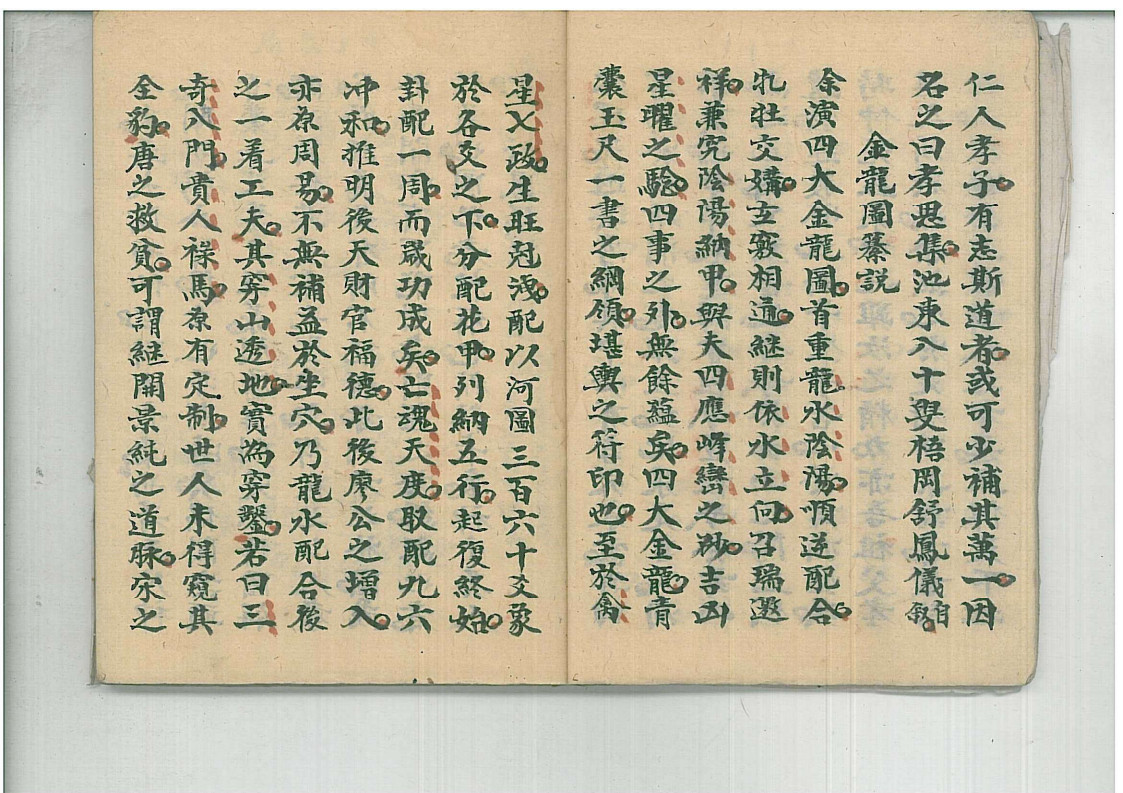 仁人孝子有志斯道者或可少補其萬一因
名之曰孝思集池東八十叟梧岡舒鳳儀自叙
金龍圖纂説
余演四大金龍圖首重龍水陰陽順逆配合
牝牡交媾玄竅相通継則依水立向召瑞遯
祥兼究陰陽納甲與夫四應峰巒之砂吉凶
星曜之驗四事之外無餘蘊矣四大金龍青
囊玉尺一書之綱領堪輿之符印也至於禽
星乂政生旺尅洩配以河圖三百六十爻彖
於各爻之下分配花甲列納五行起復終始
卦配一周而歲功成矣亡魂天度取配九六
冲和推明後天財官福德此後廖公之增入
亦原周易不無補益於坐穴乃龍水配合後
之一着工夫其穿山透地實為穿鑿若曰三
奇八門貴人祿馬原有定制世人未得窺其
全豹唐之救貧可謂継開景純之道脉宋之